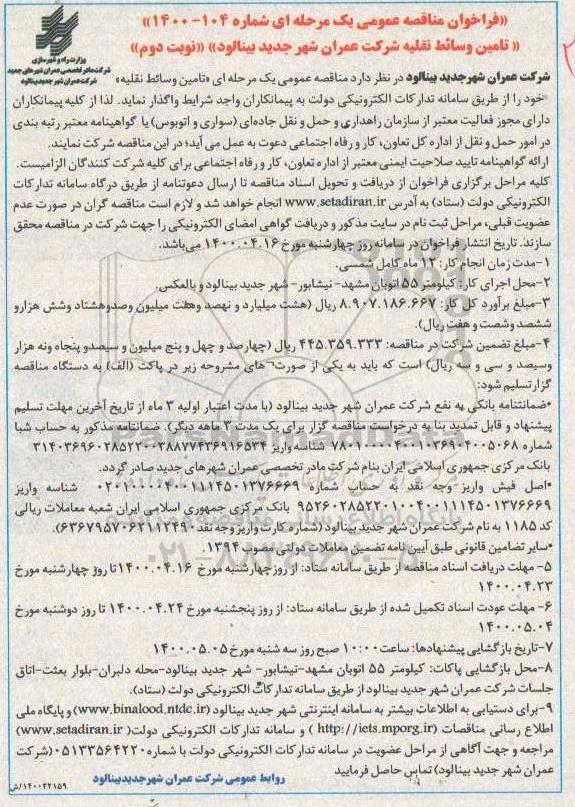 «فراخوان مناقصه عمومی یک مرحله ای شماره ۱۰۴- ۱۴۰۰»
« تامین وسائط نقلیه شرکت عمران شهر جدید بینالود» «نوبت دوم»
وزارت راه و شهرسازی
شرکت مادر تخصصی عمران شهرهای جدید
شرکت عمران شهر جدید بینالود
شرکت عمران شهرجدید بینالود در نظر دارد مناقصه عمومی یک مرحله ای «تامین وسائط نقلیه»
خود را از طریق سامانه تدارکات الکترونیکی دولت به پیمانکاران واجد شرایط واگذار نماید. لذا از کلیه پیمانکاران
دارای مجوز فعالیت معتبر از سازمان راهداری و حمل و نقل جاده‌ای (سواری و اتوبوس) یا گواهینامه معتبر رتبه بندی
در امور حمل و نقل از اداره کل تعاون، کار و رفاه اجتماعی دعوت به عمل می آید؛ در این مناقصه شرکت نمایند.
ارائه گواهینامه تایید صلاحیت ایمنی معتبر از اداره تعاون، کار و رفاه اجتماعی برای کلیه شرکت کنندگان الزامیست.
کلیه مراحل برگزاری فراخوان از دریافت و تحویل اسناد مناقصه تا ارسال دعوتنامه از طریق درگاه سامانه تدارکات
الکترونیکی دولت (ستاد) به آدرس www.setadiran.ir انجام خواهد شد و لازم است مناقصه گران در صورت عدم
عضویت قبلی، مراحل ثبت نام در سایت مذکور و دریافت گواهی امضای الکترونیکی را جهت شرکت در مناقصه محقق
سازند. تاریخ انتشار فراخوان در سامانه روز چهارشنبه مورخ ۱۴۰۰.۰۴.۱۶ می‌باشد.
۱-مدت زمان انجام کار: ۱۲ ماه کامل شمسی.
۲-محل اجرای کار: کیلومتر ۵۵ اتوبان مشهد- نیشابور- شهر جدید بینالود و بالعکس.
۳-مبلغ برآورد کل کار: ۸.۹۰۷.۱۸۶.۶۶۷ ریال (هشت میلیارد و نهصد وهفت میلیون وصدوهشتاد وشش هزارو
ششصد وشصت و هفت ریال).
۴-مبلغ تضمین شرکت در مناقصه: ۴۴۵.۳۵۹.۳۳۳ ریال (چهارصد و چهل و پنج میلیون و سیصدو پنجاه ونه هزار
وسیصد و سی و سه ریال) است که باید به یکی از صورت های مشروحه زیر در پاکت (الف) به دستگاه مناقصه
گزار تسلیم شود:
•ضمانتنامه بانکی به نفع شرکت عمران شهر جدید بینالود (با مدت اعتبار اولیه ۳ ماه از تاریخ آخرین مهلت تسلیم
پیشنهاد و قابل تمدید بنا به درخواست مناقصه گزار برای یک مدت ۳ماهه دیگر). ضمانتنامه مذکور به حساب شبا
شماره شناسه واریز
بانک مرکزی جمهوری اسلامی ایران بنام شرکت مادر تخصصی عمران شهرهای جدید صادر گردد.
•اصل فیش واریز وجه نقد به حساب شماره شناسه واریز
بانک مرکزی جمهوری اسلامی ایران شعبه معاملات ریالی
کد 1185 به نام شرکت عمران شهر جدید بینالود (شماره کارت واریز وجه نقد ۶۳۶۷۹۵۷۰۶۲۱۱۲۴۹۰)
•سایر تضامین قانونی طبق آیین نامه تضمین معاملات دولتی مصوب ۱۳۹۴.
۵- مهلت دریافت اسناد مناقصه از طریق سامانه ستاد: از روز چهارشنبه مورخ ۱۴۰۰.۰۴.۱۶ تا روز چهارشنبه مورخ
۱۴۰۰.۰۴.۲۳
۶- مهلت عودت اسناد تکمیل شده از طریق سامانه ستاد: از روز پنجشنبه مورخ ۱۴۰۰.۰۴.۲۴ تا روز دوشنبه مورخ
۱۴۰۰.۰۵.۰۴
۷-تاریخ بازگشایی پیشنهادها: ساعت ۱۰:۰۰ صبح روز سه شنبه مورخ ۱۴۰۰.۰۵.۰۵
۸-محل بازگشایی پاکات: کیلومتر ۵۵ اتوبان مشهد-نیشابور- شهر جدید بینالود-محله دلبران-بلوار بعثت-اتاق
جلسات شرکت عمران شهر جدید بینالود از طریق سامانه تدارکات الکترونیکی دولت (ستاد).
۹-برای دستیابی به اطلاعات بیشتر به سامانه اینترنتی شهر جدید بینالود (www.binalood.ntdc.ir) و پایگاه ملی
اطلاع رسانی مناقصات (http://iets.mporg.ir ) و سامانه تدارکات الکترونیکی دولت( www.setadiran.ir)
مراجعه و جهت آگاهی از مراحل عضویت در سامانه تدارکات الکترونیکی دولت با شماره ۰۵۱۳۳۵۶۴۲۲۰ (شرکت
عمران شهر جدید بینالود) تماس حاصل فرمایید
روابط عمومی شرکت عمران شهرجدیدبینالود
۱۴۰۰۲۲۱۵۹/ش